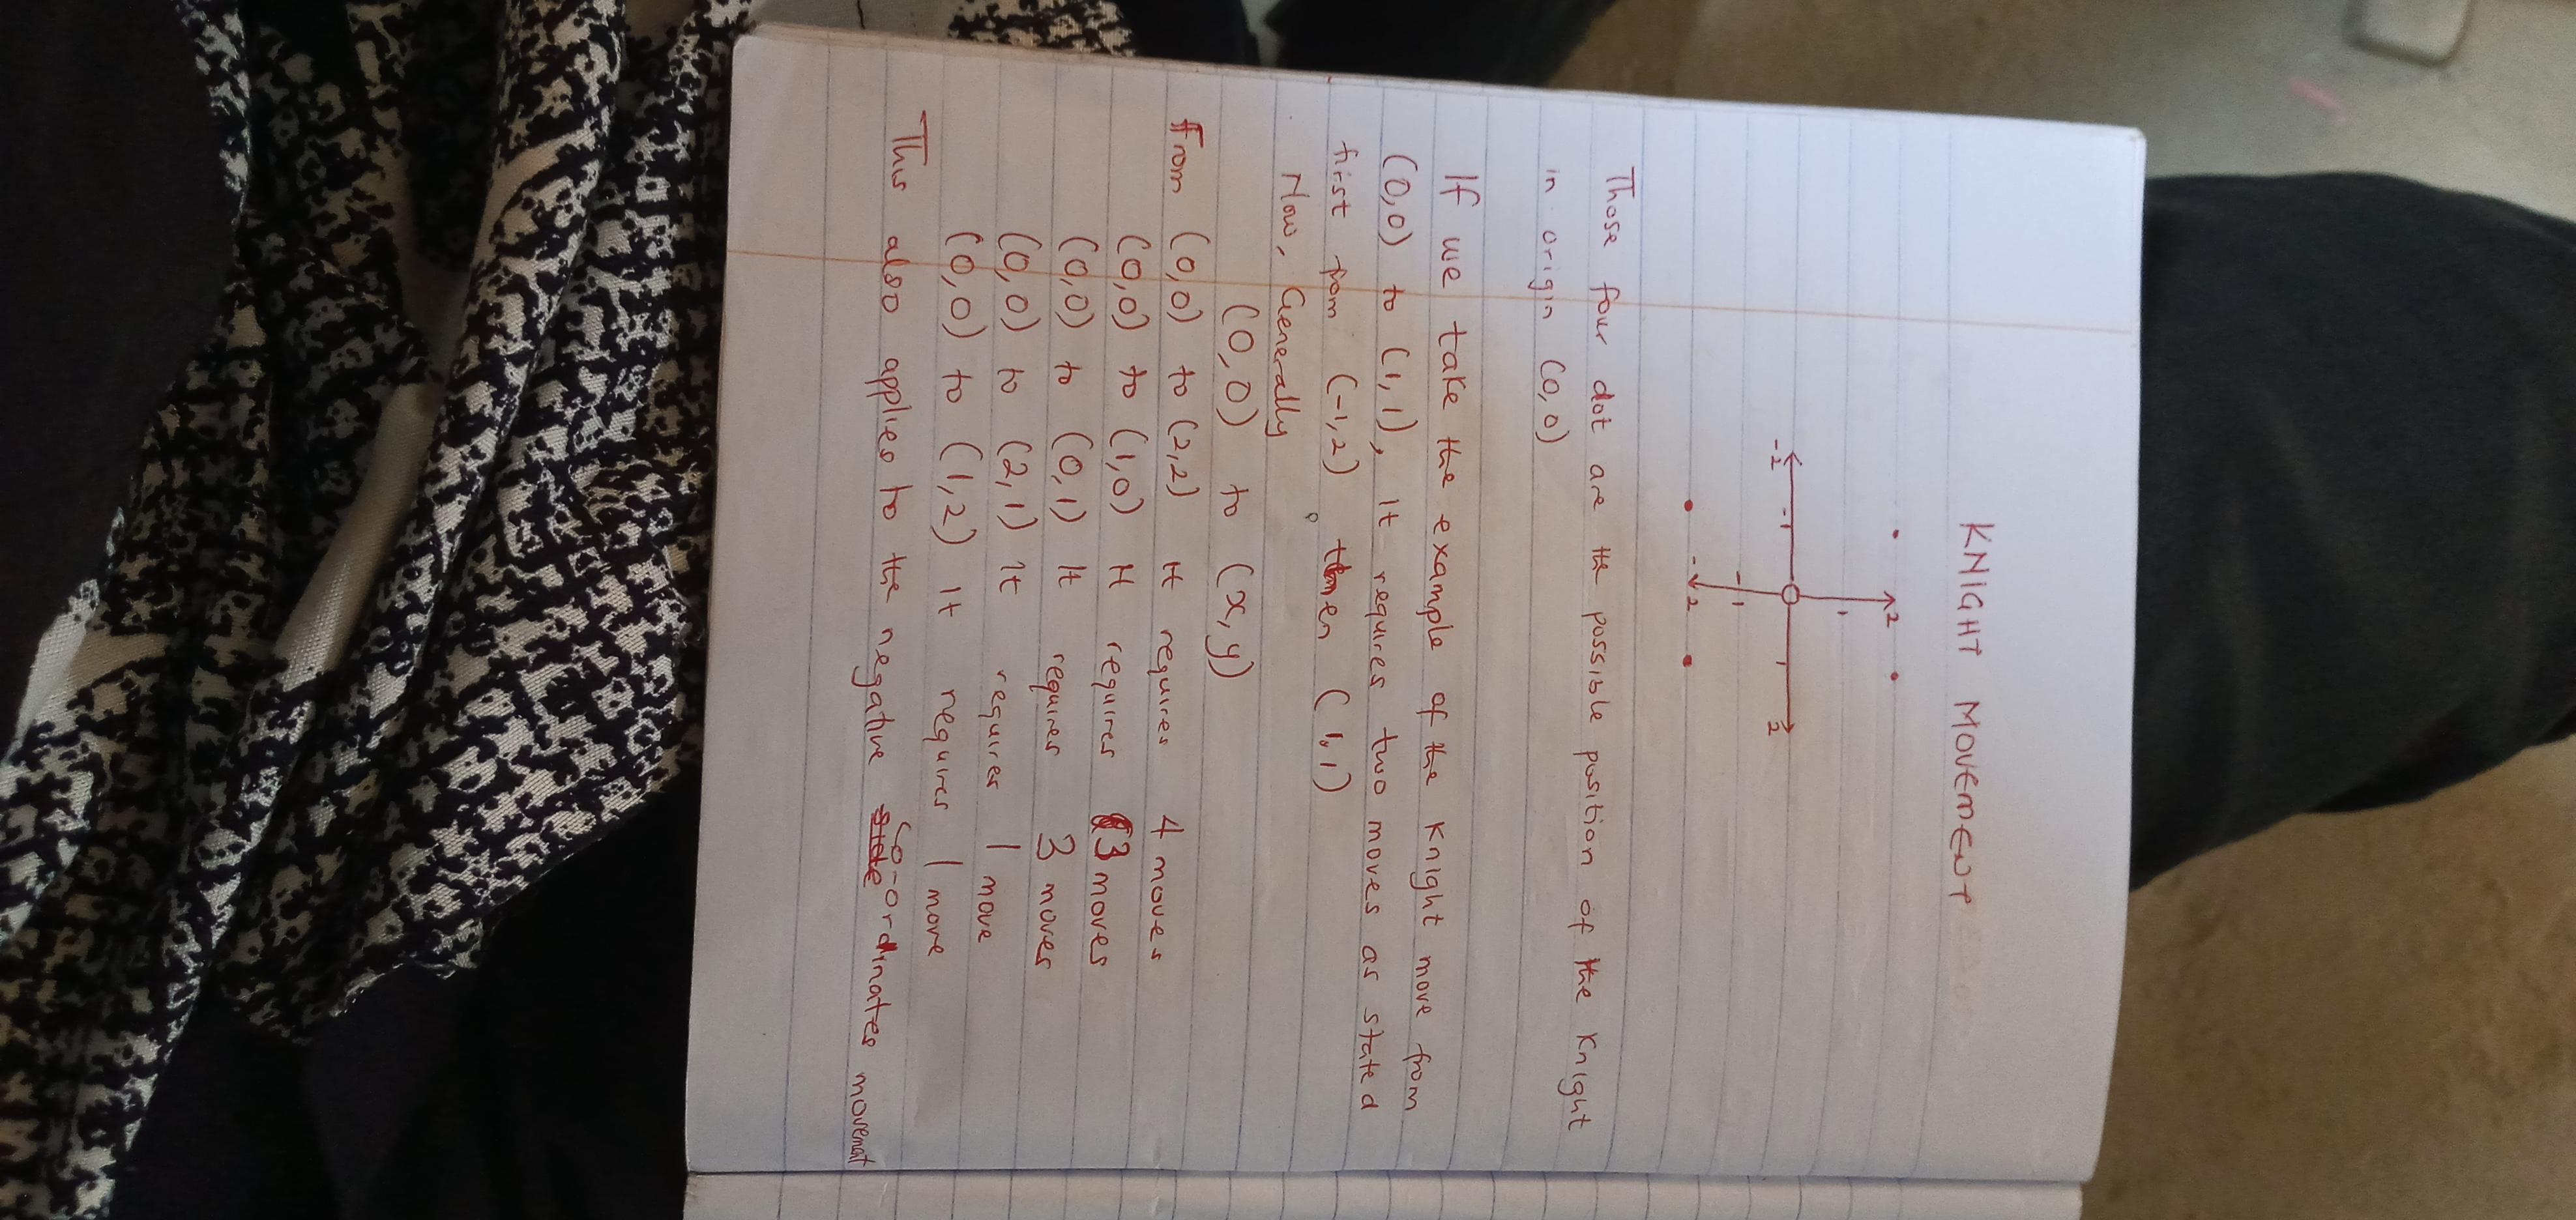 KNIGHT MOVEMENT
2
1
-2 -1 1 2
-1
-2
Those four dot are the possible position of the Knight
in origin (0,0)
If we take the example of the Knight move from
(0,0) to (1,1), It requires two moves as stated
first from (-1,2) then (1,1)
Now, Generally
(0,0) to (x,y)
From (0,0) to (2,2) It requires 4 moves
(0,0) to (1,0) It requires 3 moves
(0,0) to (0,1) It requires 3 moves
(0,0) to (2,1) It requires 1 move
(0,0) to (1,2) It requires 1 move
This also applies to the negative co-ordinates movement